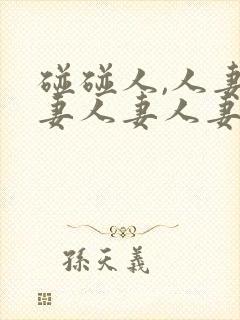 碰碰人,人妻
妻人妻人妻
孫天義